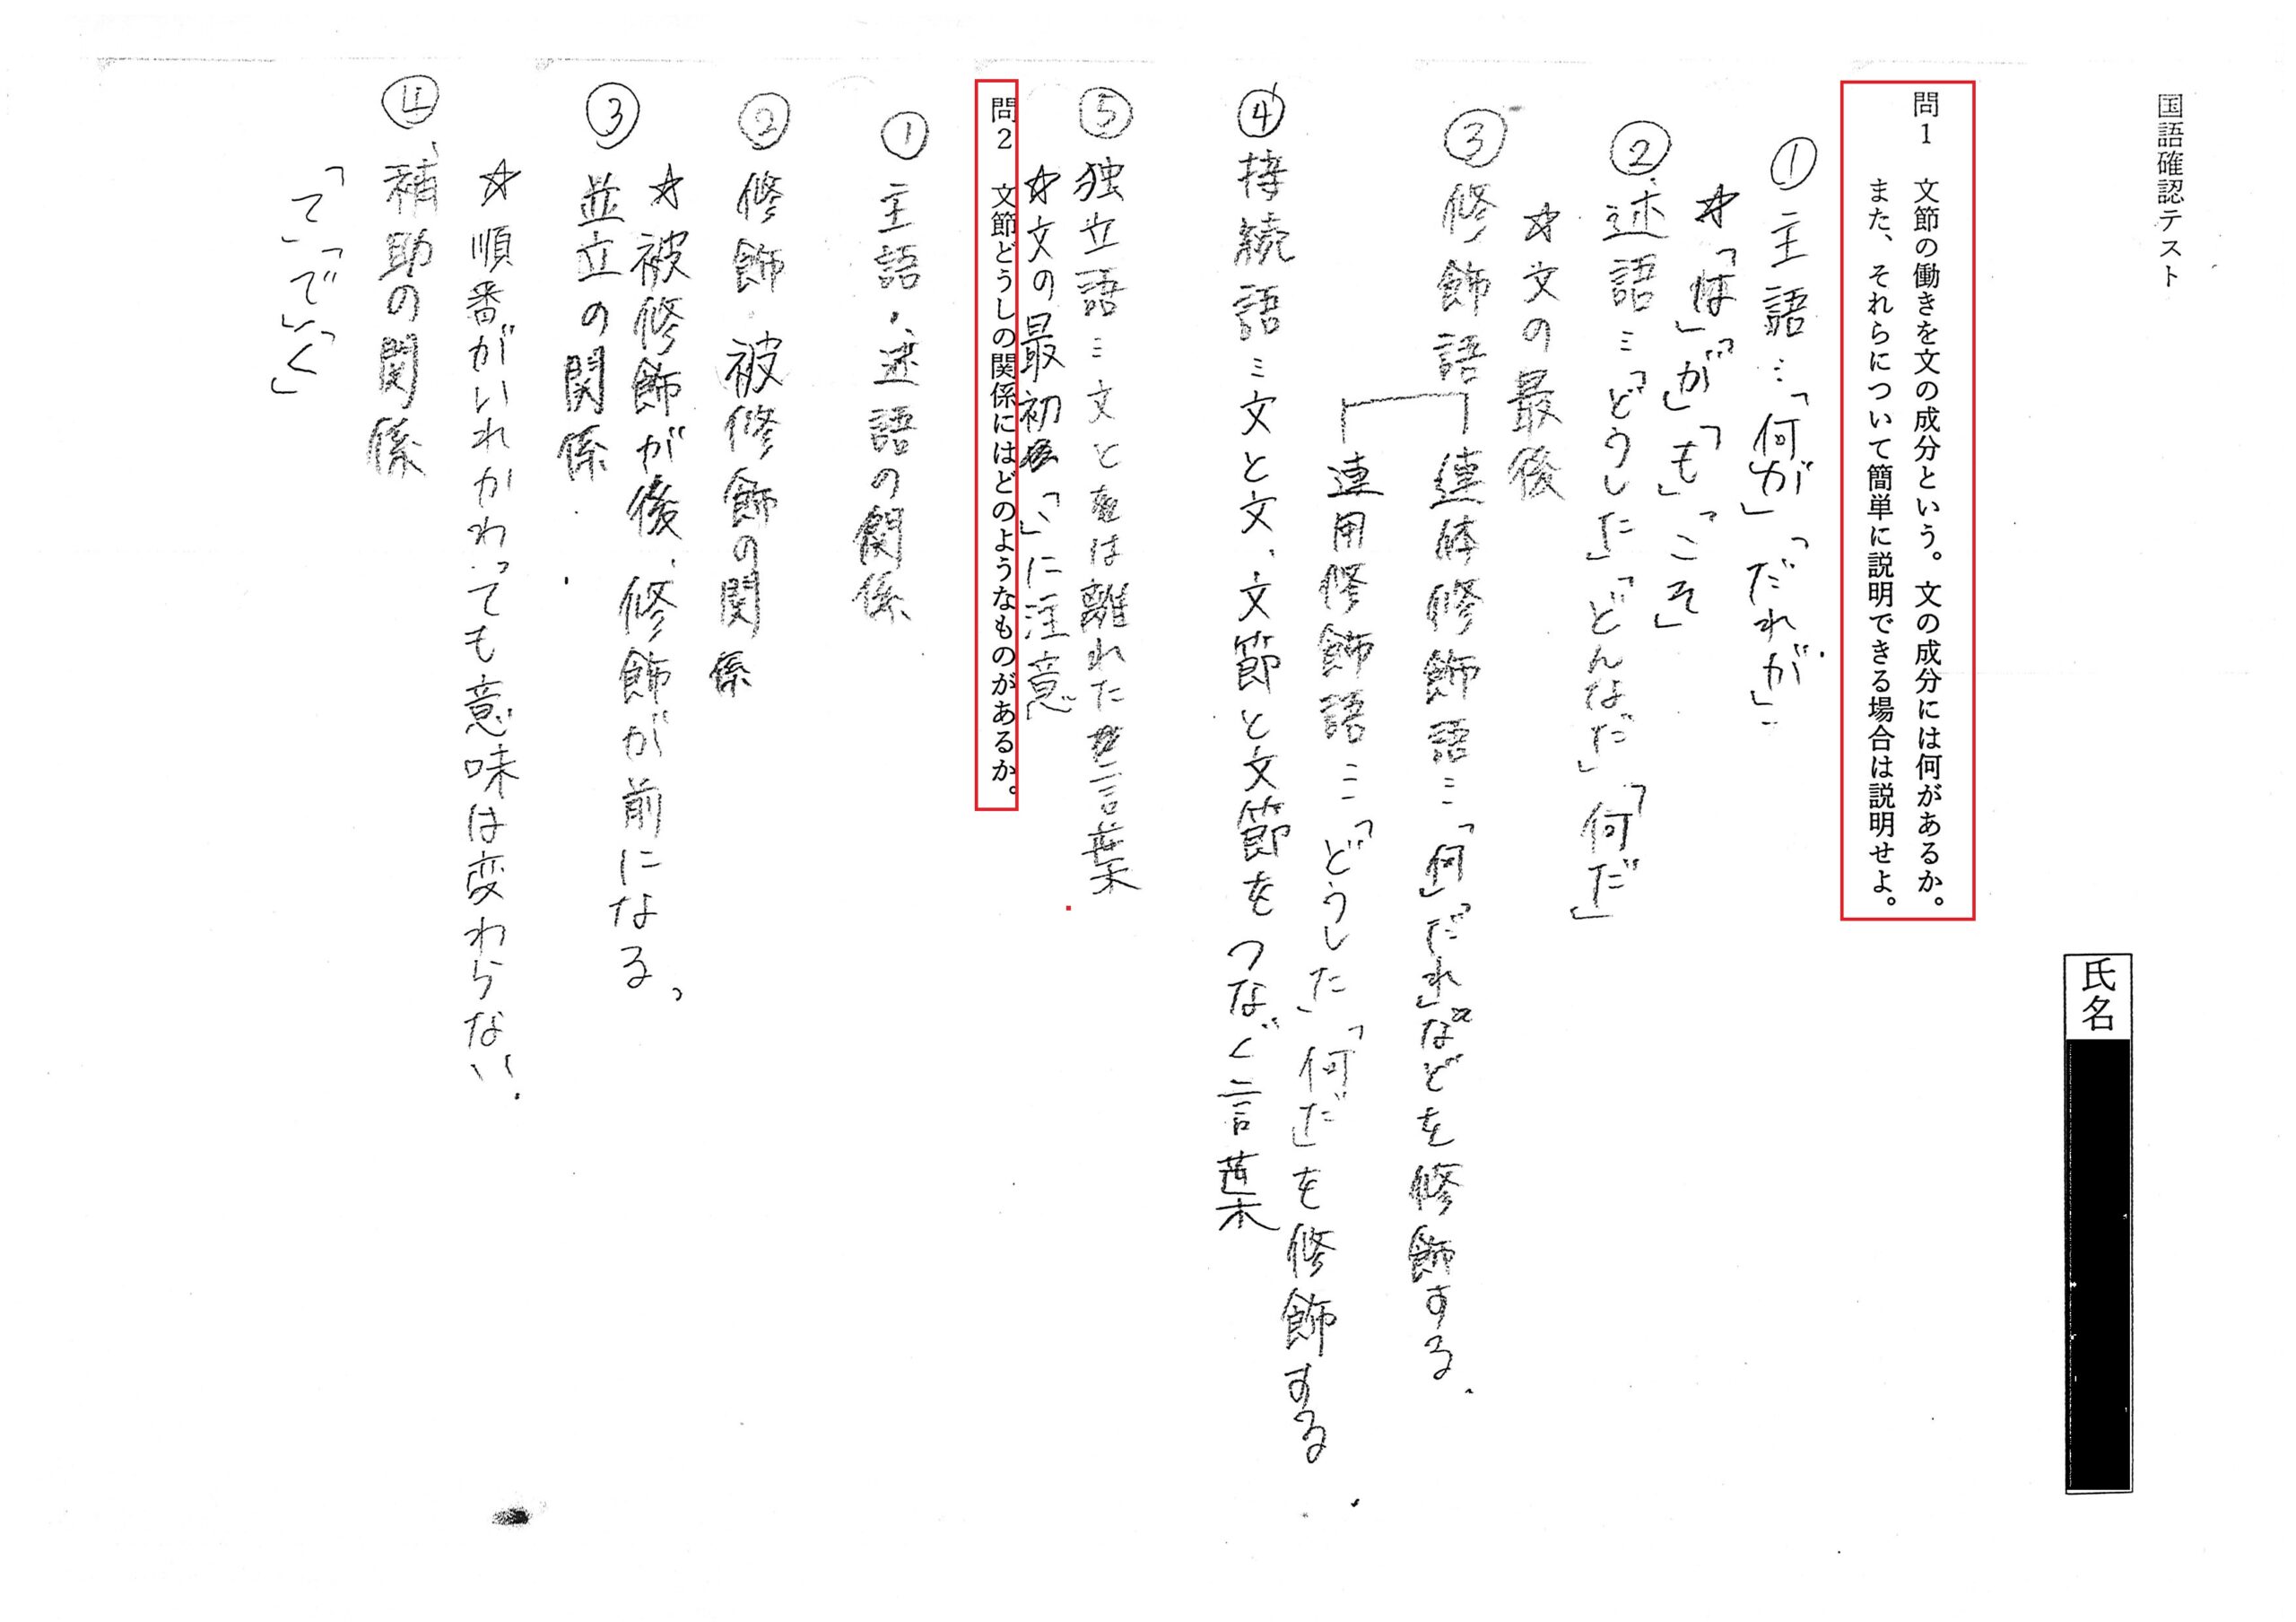 国語確認テスト
氏名
問1 文節の働きを文の成分という。文の成分には何があるか。
また、それらについて簡単に説明できる場合は説明せよ。
① 主語…「何が」「だれが」
☆「は」「が」「も」「こそ」
② 述語…「どうした」「どんなだ」「何だ」
☆文の最後
③ 修飾語 連体修飾語…「何」「だれ」などを修飾する。
連用修飾語…「どうした」「何だ」を修飾する
④ 接続語…文と文、文節と文節をつなぐ言葉
⑤ 独立語…文とは離れた言葉
☆文の最初 「、」に注意
問2 文節どうしの関係にはどのようなものがあるか。
① 主語・述語の関係
② 修飾・被修飾の関係
☆被修飾が後、修飾が前になる。
③ 並立の関係
☆順番がいれかわっても意味は変わらない。
④ 補助の関係
「て」「で」「く」